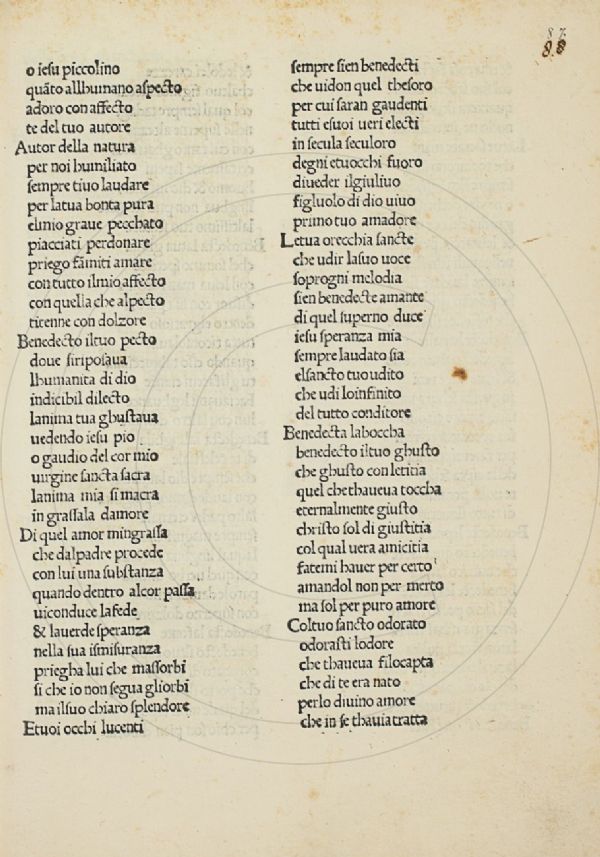 87
88
o iesu piccolino
quãto allhumano aspecto
adoro con affecto
te del tuo autore
Autor della natura
per noi humiliato
sempre tiuo laudare
per latua bonta pura
elmio graue pecchato
piacciati perdonare
priego fãmiti amare
con tutto ilmio affecto
con quella che alpecto
titenne con dolzore
Benedecto iltuo pecto
doue siriposaua
lhumanita di dio
indicibil dilecto
lanima tua ghustaua
uedendo iesu pio
o gaudio del cor mio
uirgine sancta sacra
lanima mia si macra
in grassala damore
Di quel amor mingrassa
che dalpadre procede
con lui una substanza
quando dentro alcor passa
uiconduce lafede
& lauerde speranza
nella sua ismisuranza
priegha lui che massorbi
si che io non segua gliorbi
ma ilsuo chiaro splendore
Etuoi occhi lucenti
sempre sien benedecti
che uidon quel thesoro
per cui saran gaudenti
tutti esuoi ueri electi
in secula seculoro
degni etuocchi fuoro
diueder ilgiuliuo
figluolo di dio uiuo
primo tuo amadore
Letua orecchia sancte
che udir lasuo uoce
soprogni melodia
sien benedecte amante
di quel superno duce
iesu speranza mia
sempre laudato sia
elsancto tuo udito
che udi loinfinito
del tutto conditore
Benedecta laboccha
benedecto iltuo ghusto
che ghusto con letitia
quel che thaueua toccha
eternalmente giusto
christo sol di giustitia
col qual uera amicitia
fatemi hauer per certo
amandol non per merto
ma sol per puro amore
Coltuo sancto odorato
odorasti lodore
che thaueua filocapta
che di te era nato
perlo diuino amore
che in se thauia tratta